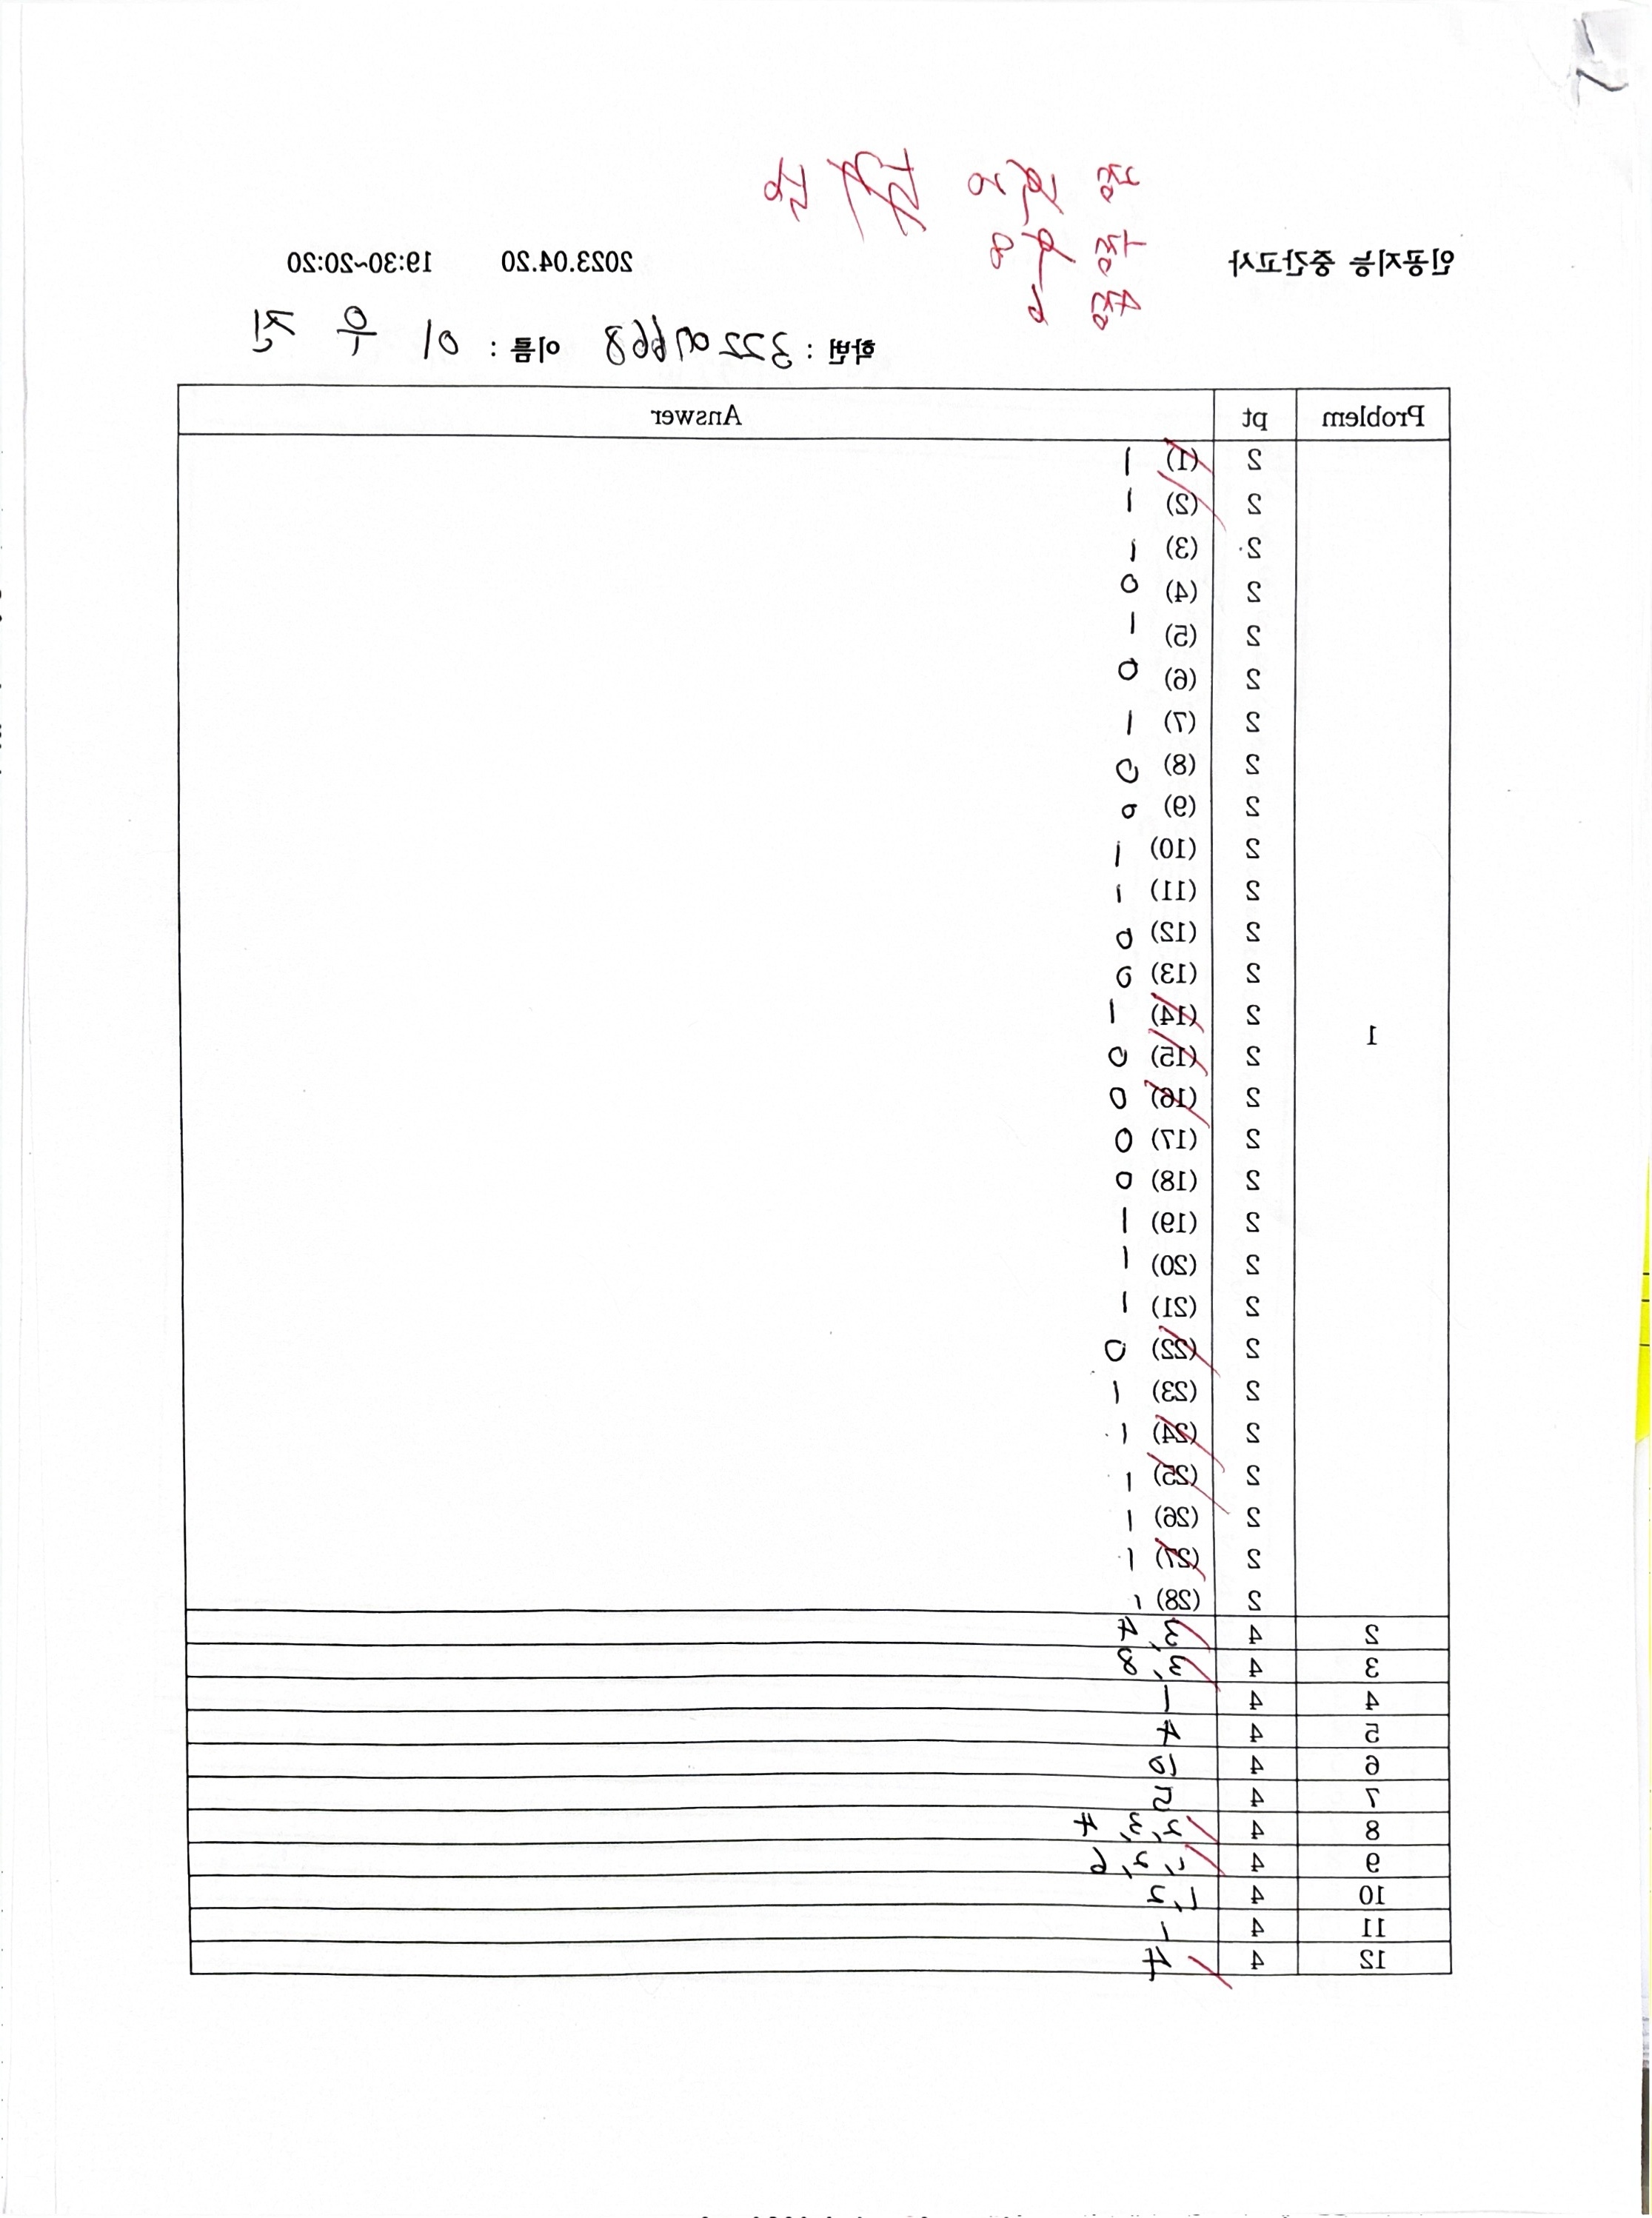 인공지능 중간고사 2023.04.20 19:30~20:20
학번 : 이름 : 이 우 진
Problem pt Answer
1
2 (1) 1
2 (2) 1
2 (3) 1
2 (4) 0
2 (5) 1
2 (6) 0
2 (7) 1
2 (8) 0
2 (9) 0
2 (10) 1
2 (11) 1
2 (12) 0
2 (13) 0
2 (14) 1
2 (15) 0
2 (16) 0
2 (17) 0
2 (18) 0
2 (19) 1
2 (20) 1
2 (21) 1
2 (22) 0
2 (23) 1
2 (24) 1
2 (25) 1
2 (26) 1
2 (27) 1
2 (28) 1
2 4 3, 4
3 4 3, 8
4 4 1
5 4 4
6 4 5
7 4 2
8 4 2, 3, 4
9 4 1, 2, 6
10 4 1, 2
11 4 1
12 4 4